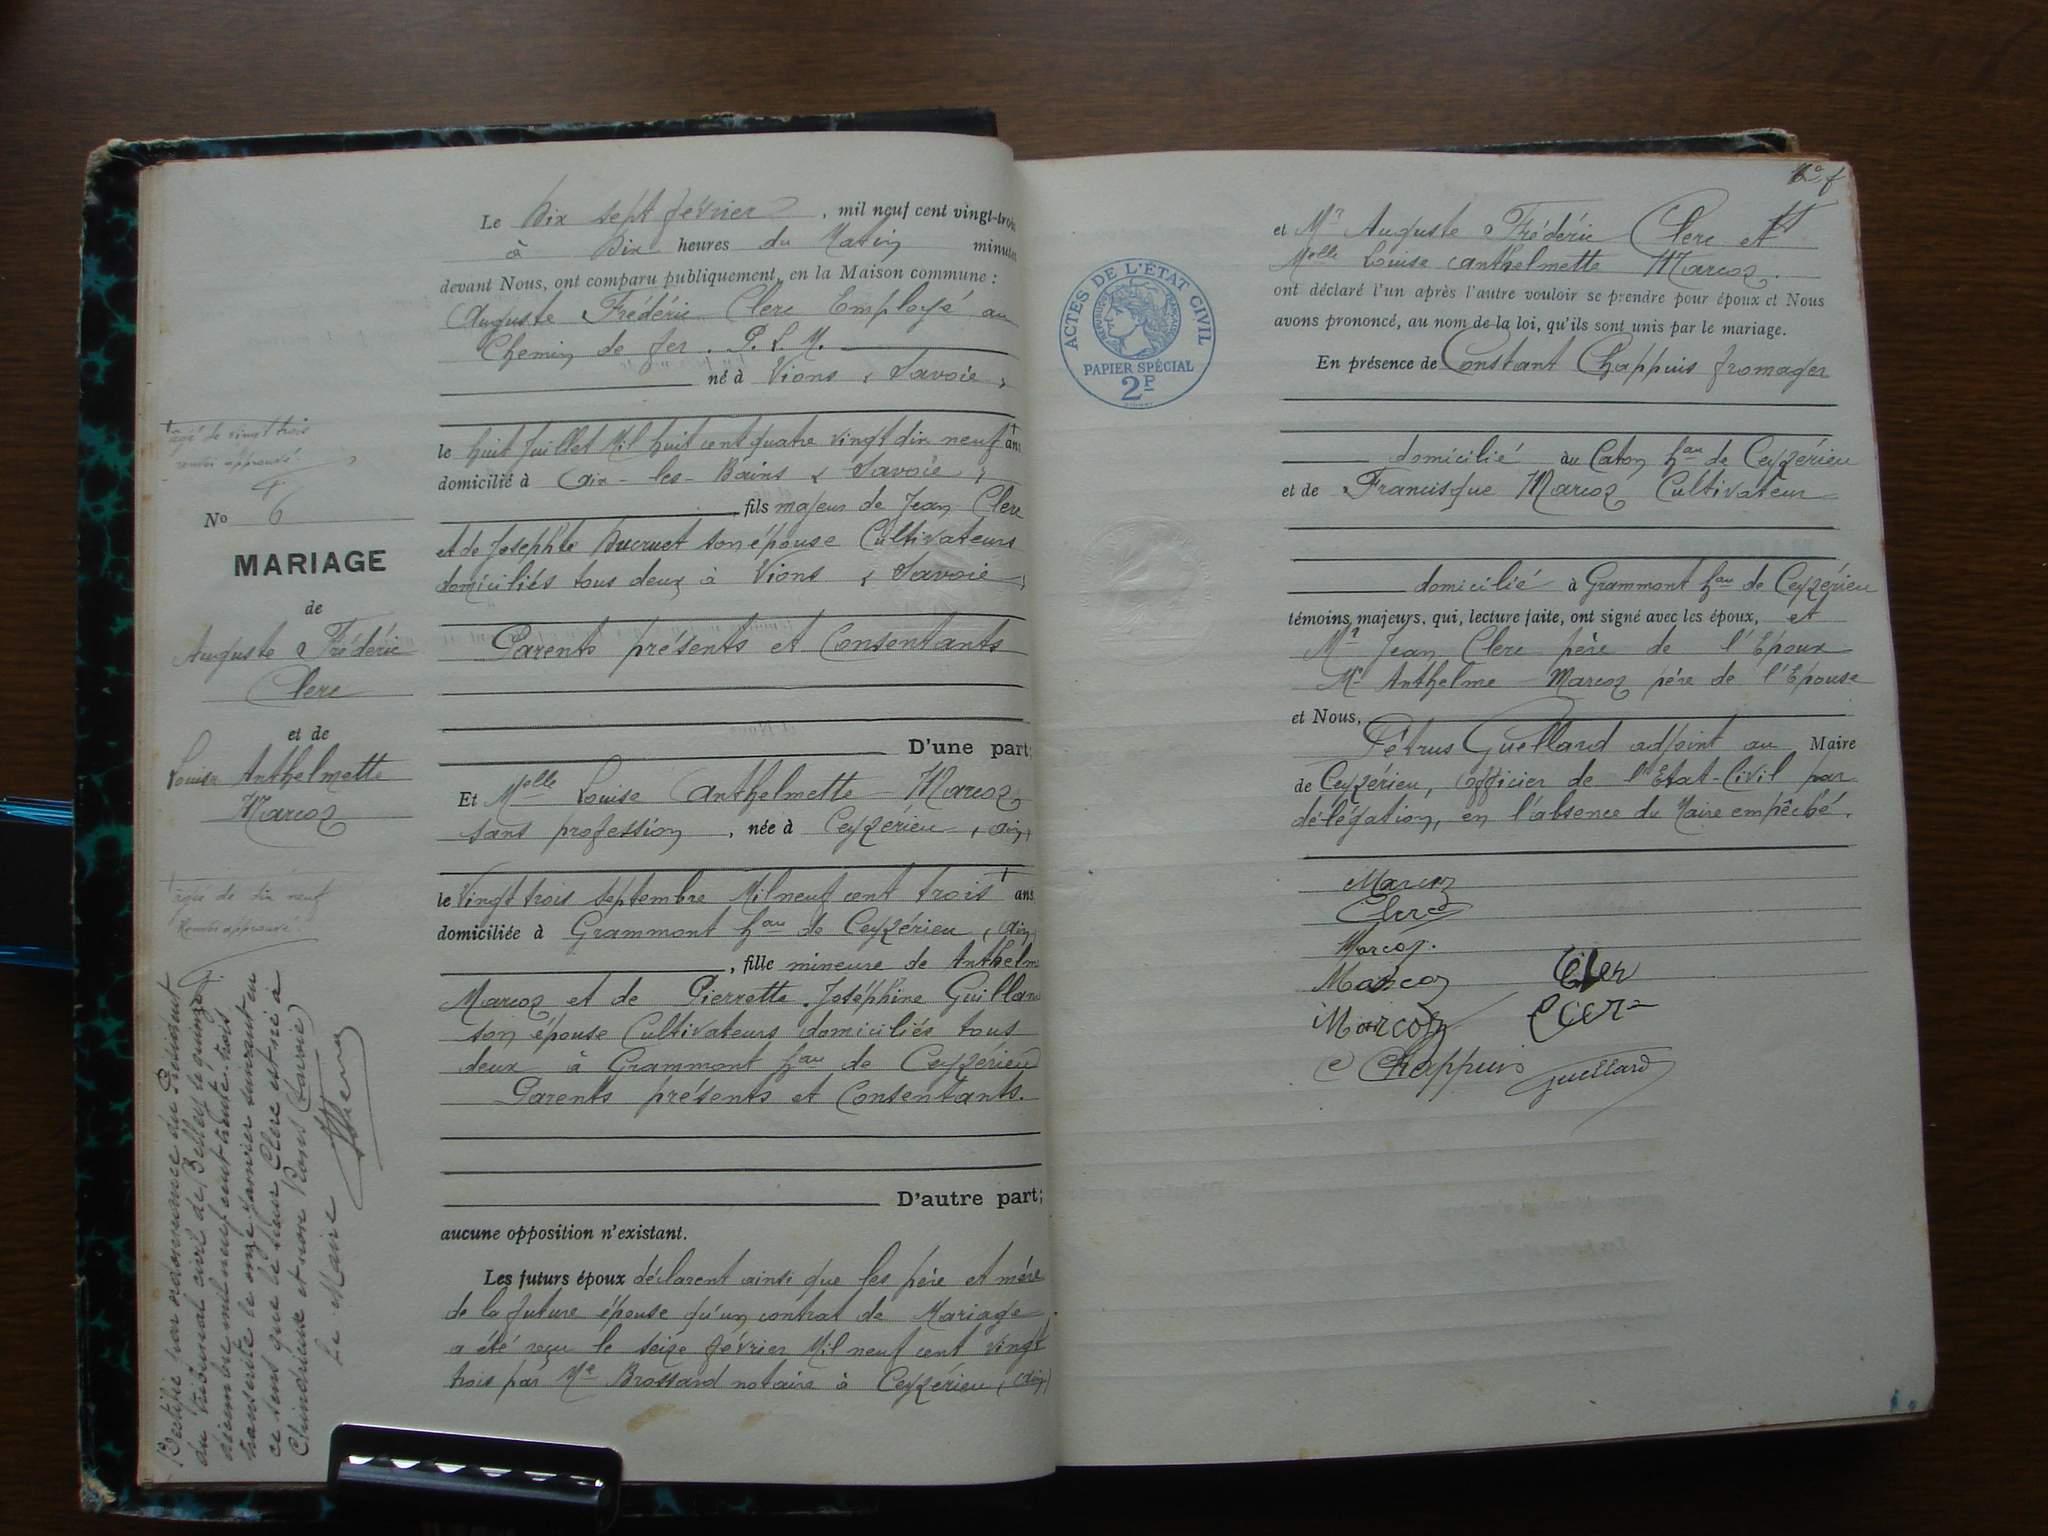 âgé de vingt trois
renvoi approuvé
No 6
MARIAGE
de
Auguste Frédéric
Clerc
et de
Louise Anthelmette
Marcoz
agée de dix neuf
Renvoi approuvé
Rectifié par ordonnance du Président
du tribunal civil de Belley le quinze
décembre mil neuf cent trente-trois
transcrite le onze janvier suivant en
ce sens que le sieur Clerc est né à
Chindrieux et non Vions (Savoie)
Le Maire
Le Dix sept février, mil neuf cent vingt-trois
à Dix heures du Matin minutes
devant Nous, ont comparu publiquement, en la Maison commune :
Auguste Frédéric Clerc Employé au
Chemin de fer . P. L. M.
né à Vions (Savoie)
le huit Juillet Mil huit cent quatre vingt dix neuf ans
domicilié à Aix-les-Bains (Savoie)
, fils majeur de Jean Clerc
et de Josephte Ducruet son épouse Cultivateurs
domiciliés tous deux à Vions (Savoie)
Parents présents et Consentants
D'une part;
Et Melle Louise Anthelmette Marcoz
sans profession, née à Ceyzérieu (Ain)
le Vingt trois septembre Mil neuf cent trois ans
domiciliée à Grammont hau de Ceyzérieu (Ain)
, fille mineure de Anthelm
Marcoz et de Pierrette Joséphine Guillan
son épouse Cultivateurs domiciliés tous
deux à Grammont hau de Ceyzérieu
Parents présents et Consentants.
D'autre part;
aucune opposition n'existant.
Les futurs époux déclarent ainsi que les père et mère
de la future épouse qu'un contrat de Mariage
a été reçu le seize février Mil neuf cent vingt
trois par Me Brossard notaire à Ceyzérieu (Ain)
ACTES DE L'ÉTAT CIVIL
RÉPUBLIQUE FRANÇAISE
PAPIER SPÉCIAL
2F
et Mr Auguste Frédéric Clerc et
Melle Louise Anthelmette Marcoz.
ont déclaré l'un après l'autre vouloir se prendre pour époux et Nous
avons prononcé, au nom de la loi, qu'ils sont unis par le mariage.
En présence de Constant Chappuis fromager
domicilié au Caton hau de Ceyzérieu
et de Francisque Marcoz Cultivateur
domicilié à Grammont hau de Ceyzérieu
témoins majeurs, qui, lecture faite, ont signé avec les époux, et
Mr Jean Clerc père de l'Epoux
Mr Anthelme Marcoz père de l'Epouse
et Nous,
Pétrus Guellard adjoint au Maire
de Ceyzérieu, Officier de l'Etat-Civil par
délégation, en l'absence du Maire empêché.
Marcoz
Clerc
Marcoz.
Marcoz Cler
Marcoz Clerc
C Chappuis Guellard